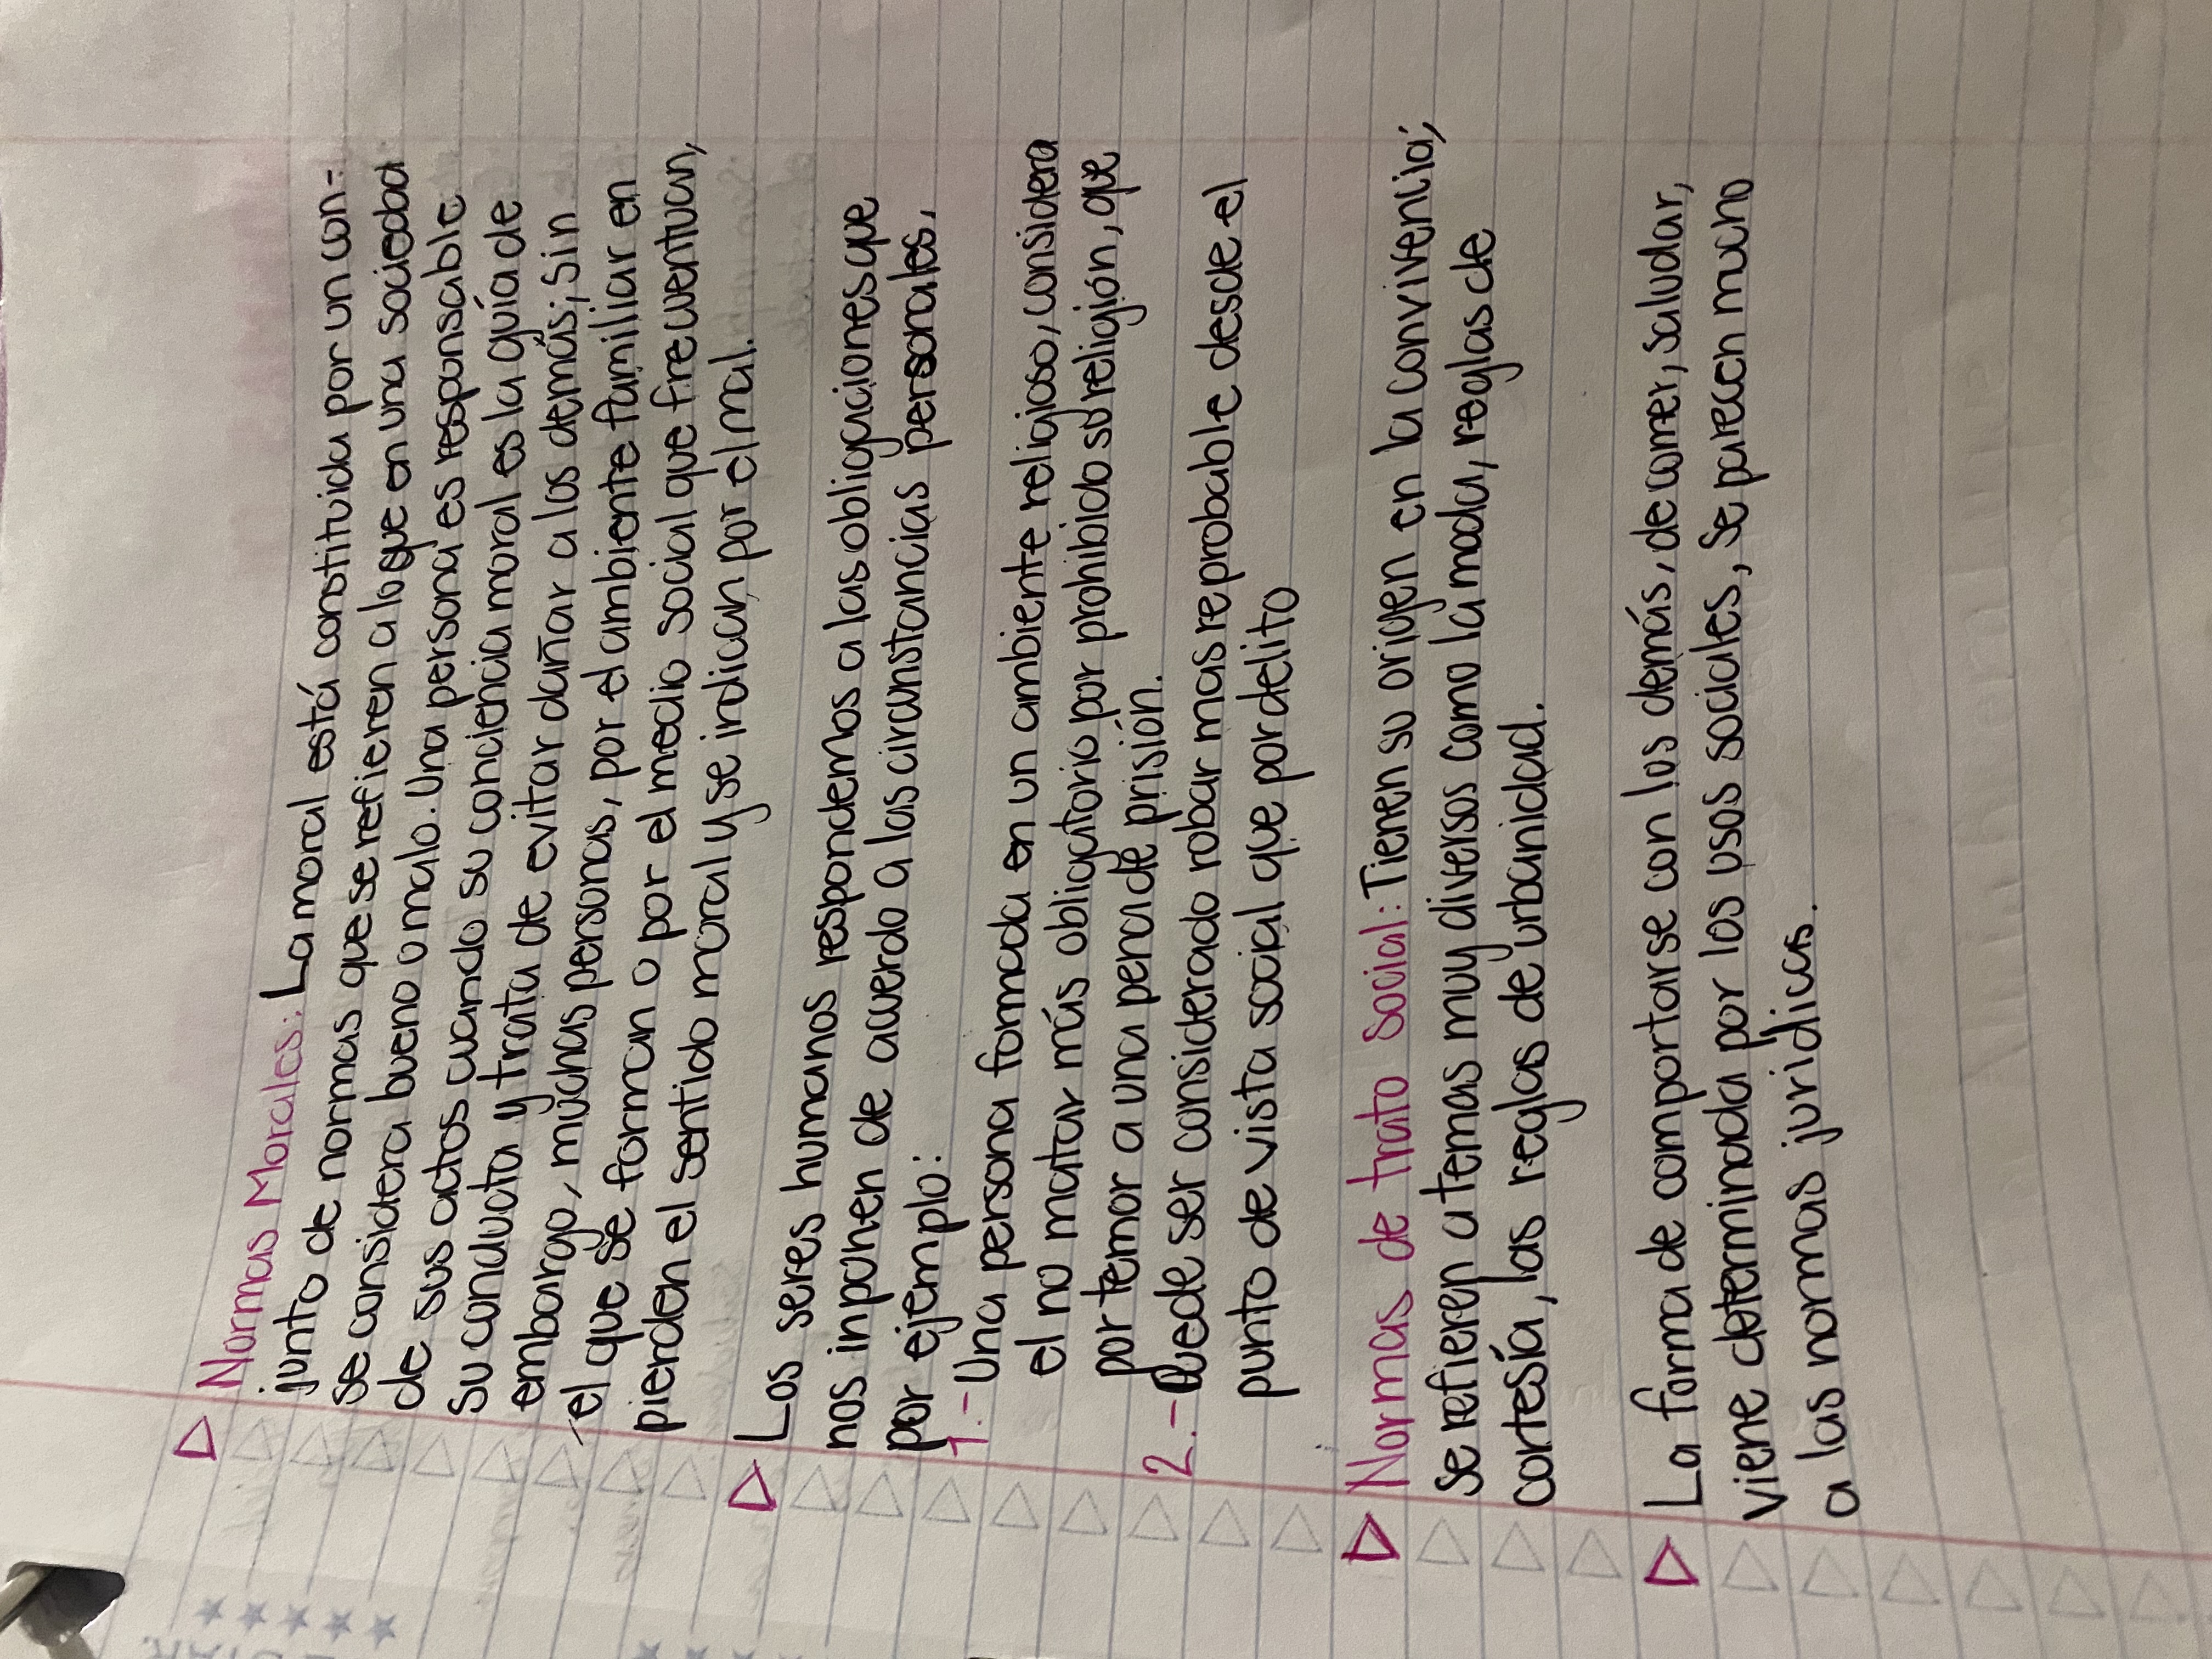 Normas Morales: La moral está constituida por un con-
junto de normas que se refieren a lo que en una sociedad
se considera bueno o malo. Una persona es responsable
de sus actos cuando su conciencia moral es la guía de
su conducta y trata de evitar dañar a los demás; sin
embargo, muchas personas, por el ambiente familiar en
el que se forman o por el medio social que frecuentan,
pierden el sentido moral y se indican por el mal.
Los seres humanos respondemos a las obligaciones que
nos inponen de acuerdo a las circunstancias personales,
por ejemplo:
1.- Una persona formada en un ambiente religioso, considera
el no matar más obligatorio por prohibido su religión, que
por temor a una pena de prisión.
2.- Puede ser considerado robar mas reprobable desde el
punto de vista social que por delito
Normas de trato social: Tienen su origen en la convivencia,
se refieren a temas muy diversos como la moda, reglas de
cortesía, las reglas de urbanidad.
La forma de comportarse con los demás, de comer, saludar,
viene determinada por los usos sociales, se parecen mucho
a las normas jurídicas.